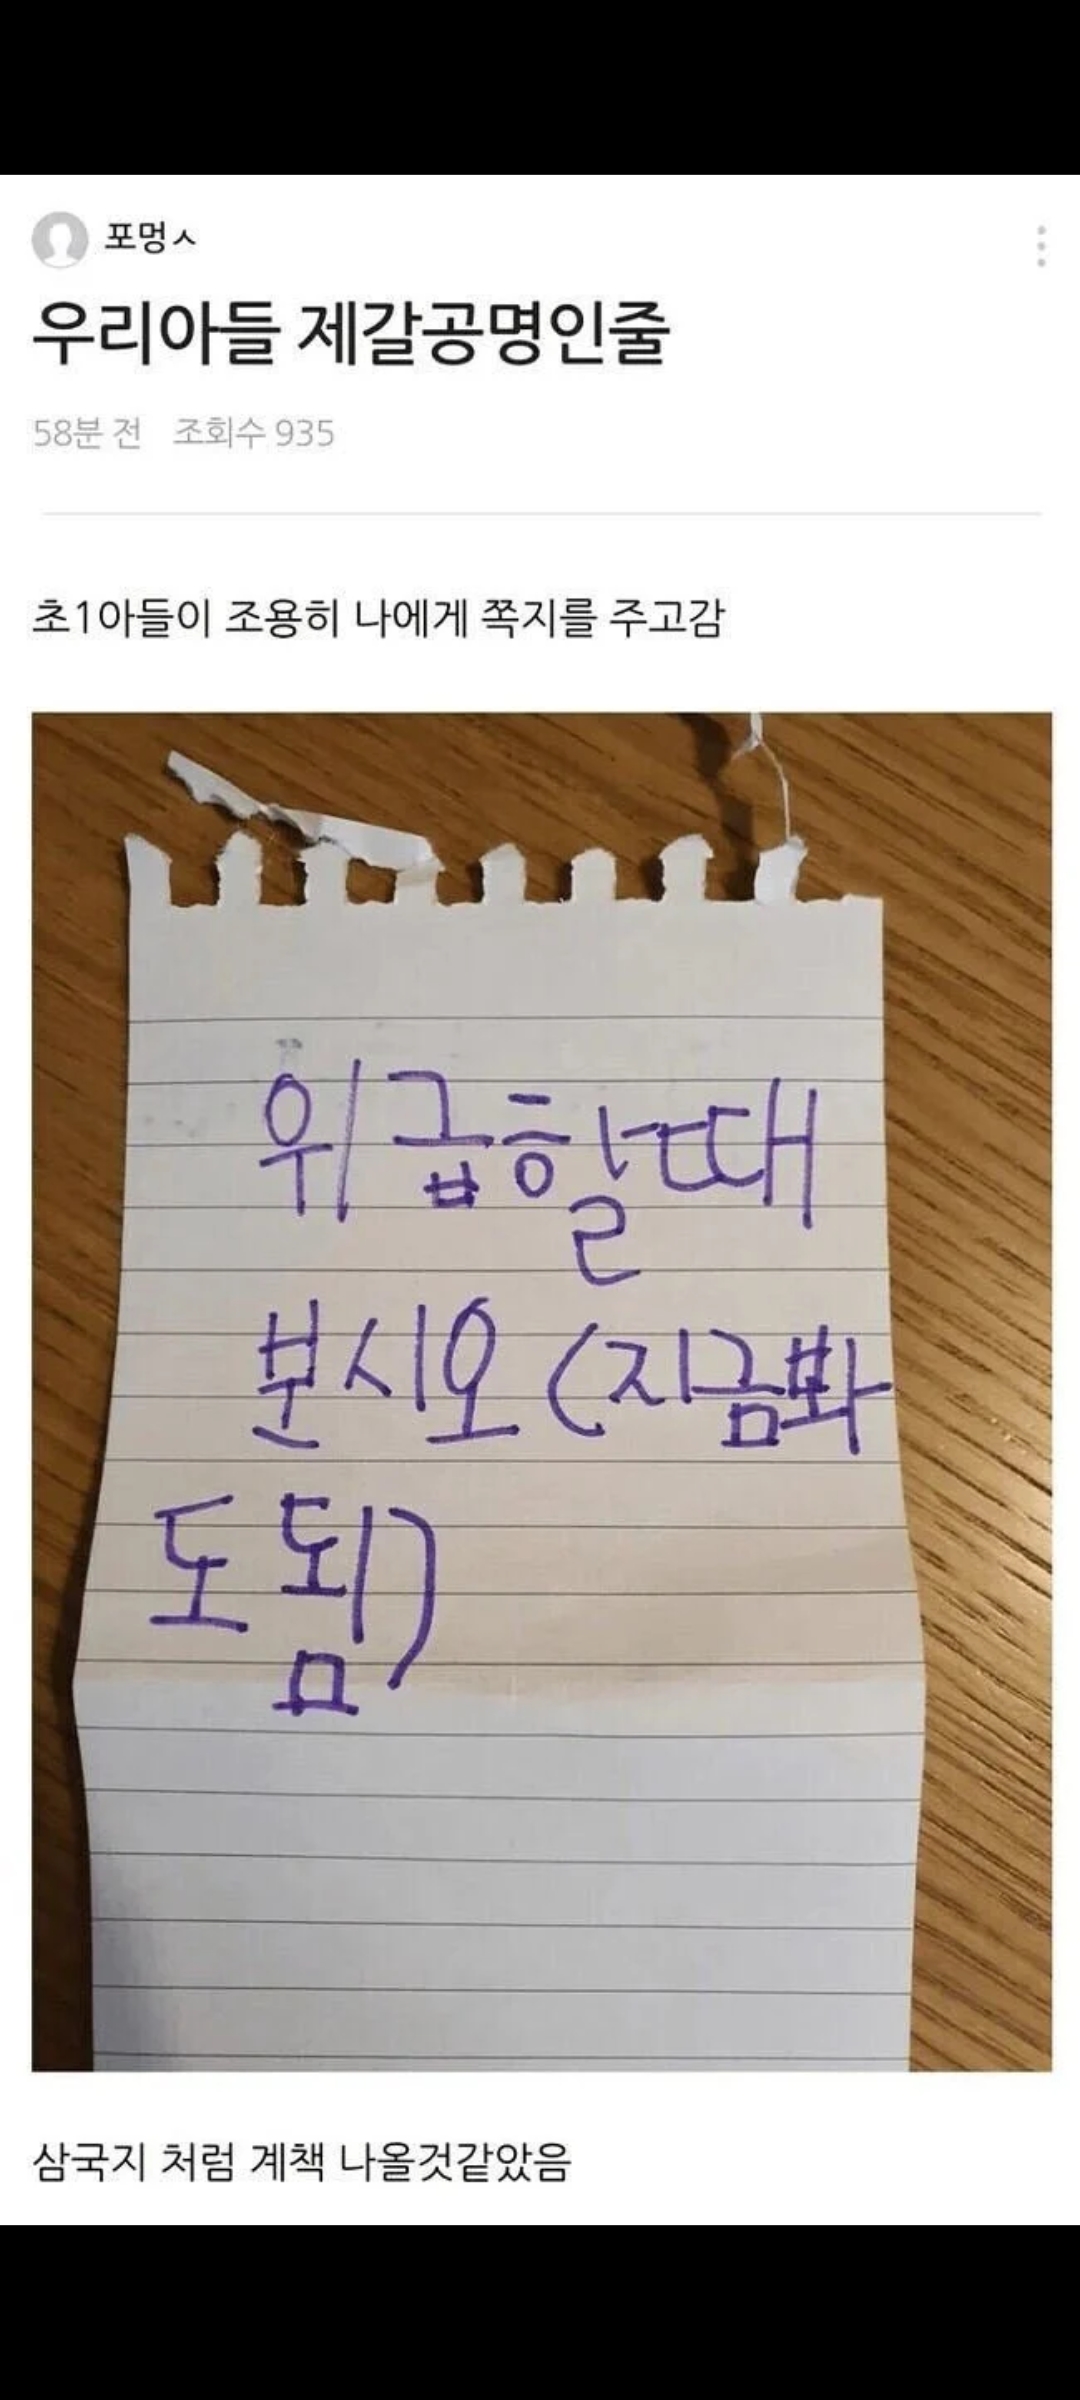 포멍ㅅ
우리아들 제갈공명인줄
58분 전 조회수 935
초1아들이 조용히 나에게 쪽지를 주고감
위급할때
본시오 (지금봐
도됨)
삼국지 처럼 계책 나올것같았음